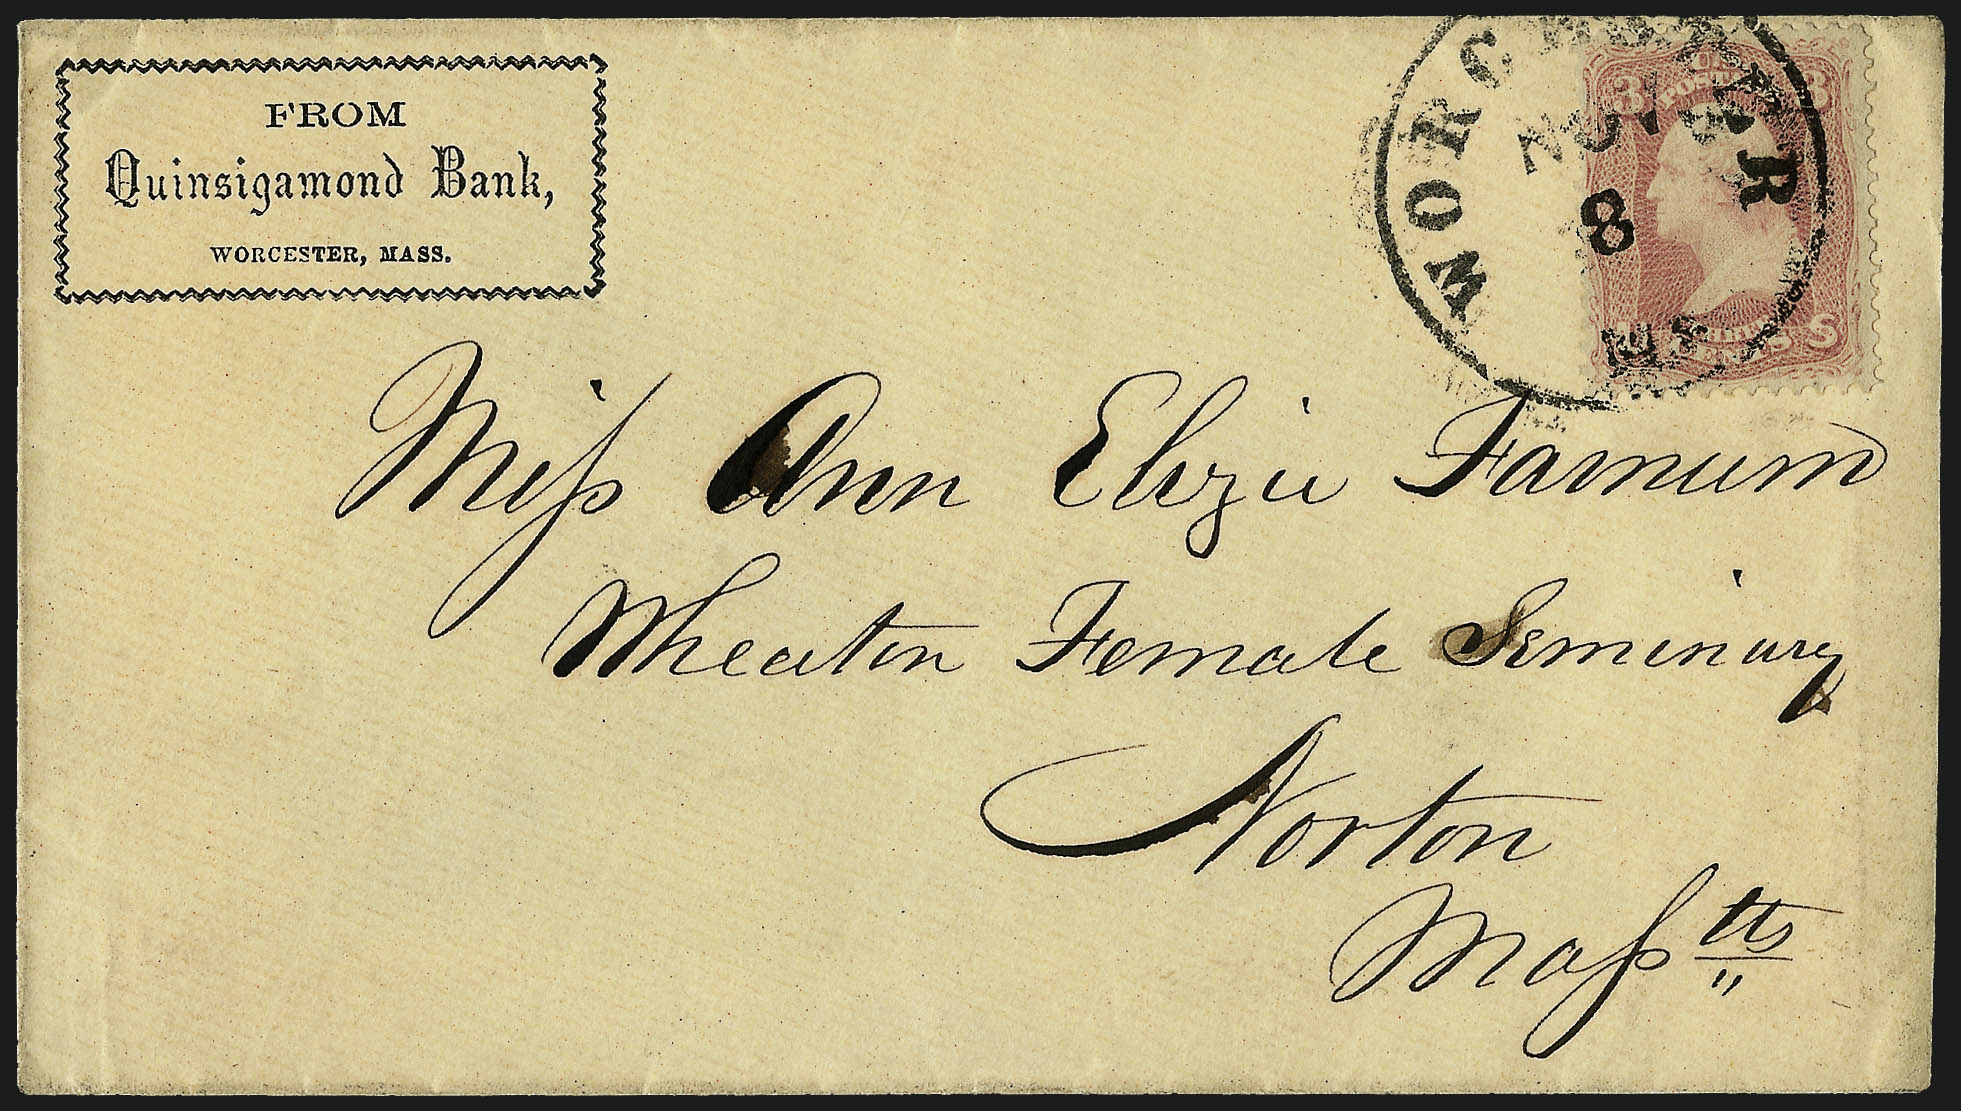 FROM
Quinsigamond Bank,
WORCESTER, MASS.
WORCESTER
NOV
8
MS
3 3
U.S.
POSTAGE
THREE
CENTS
Miss Ann Elizie Farnum
Wheaton Female Seminary
Norton
Masstts